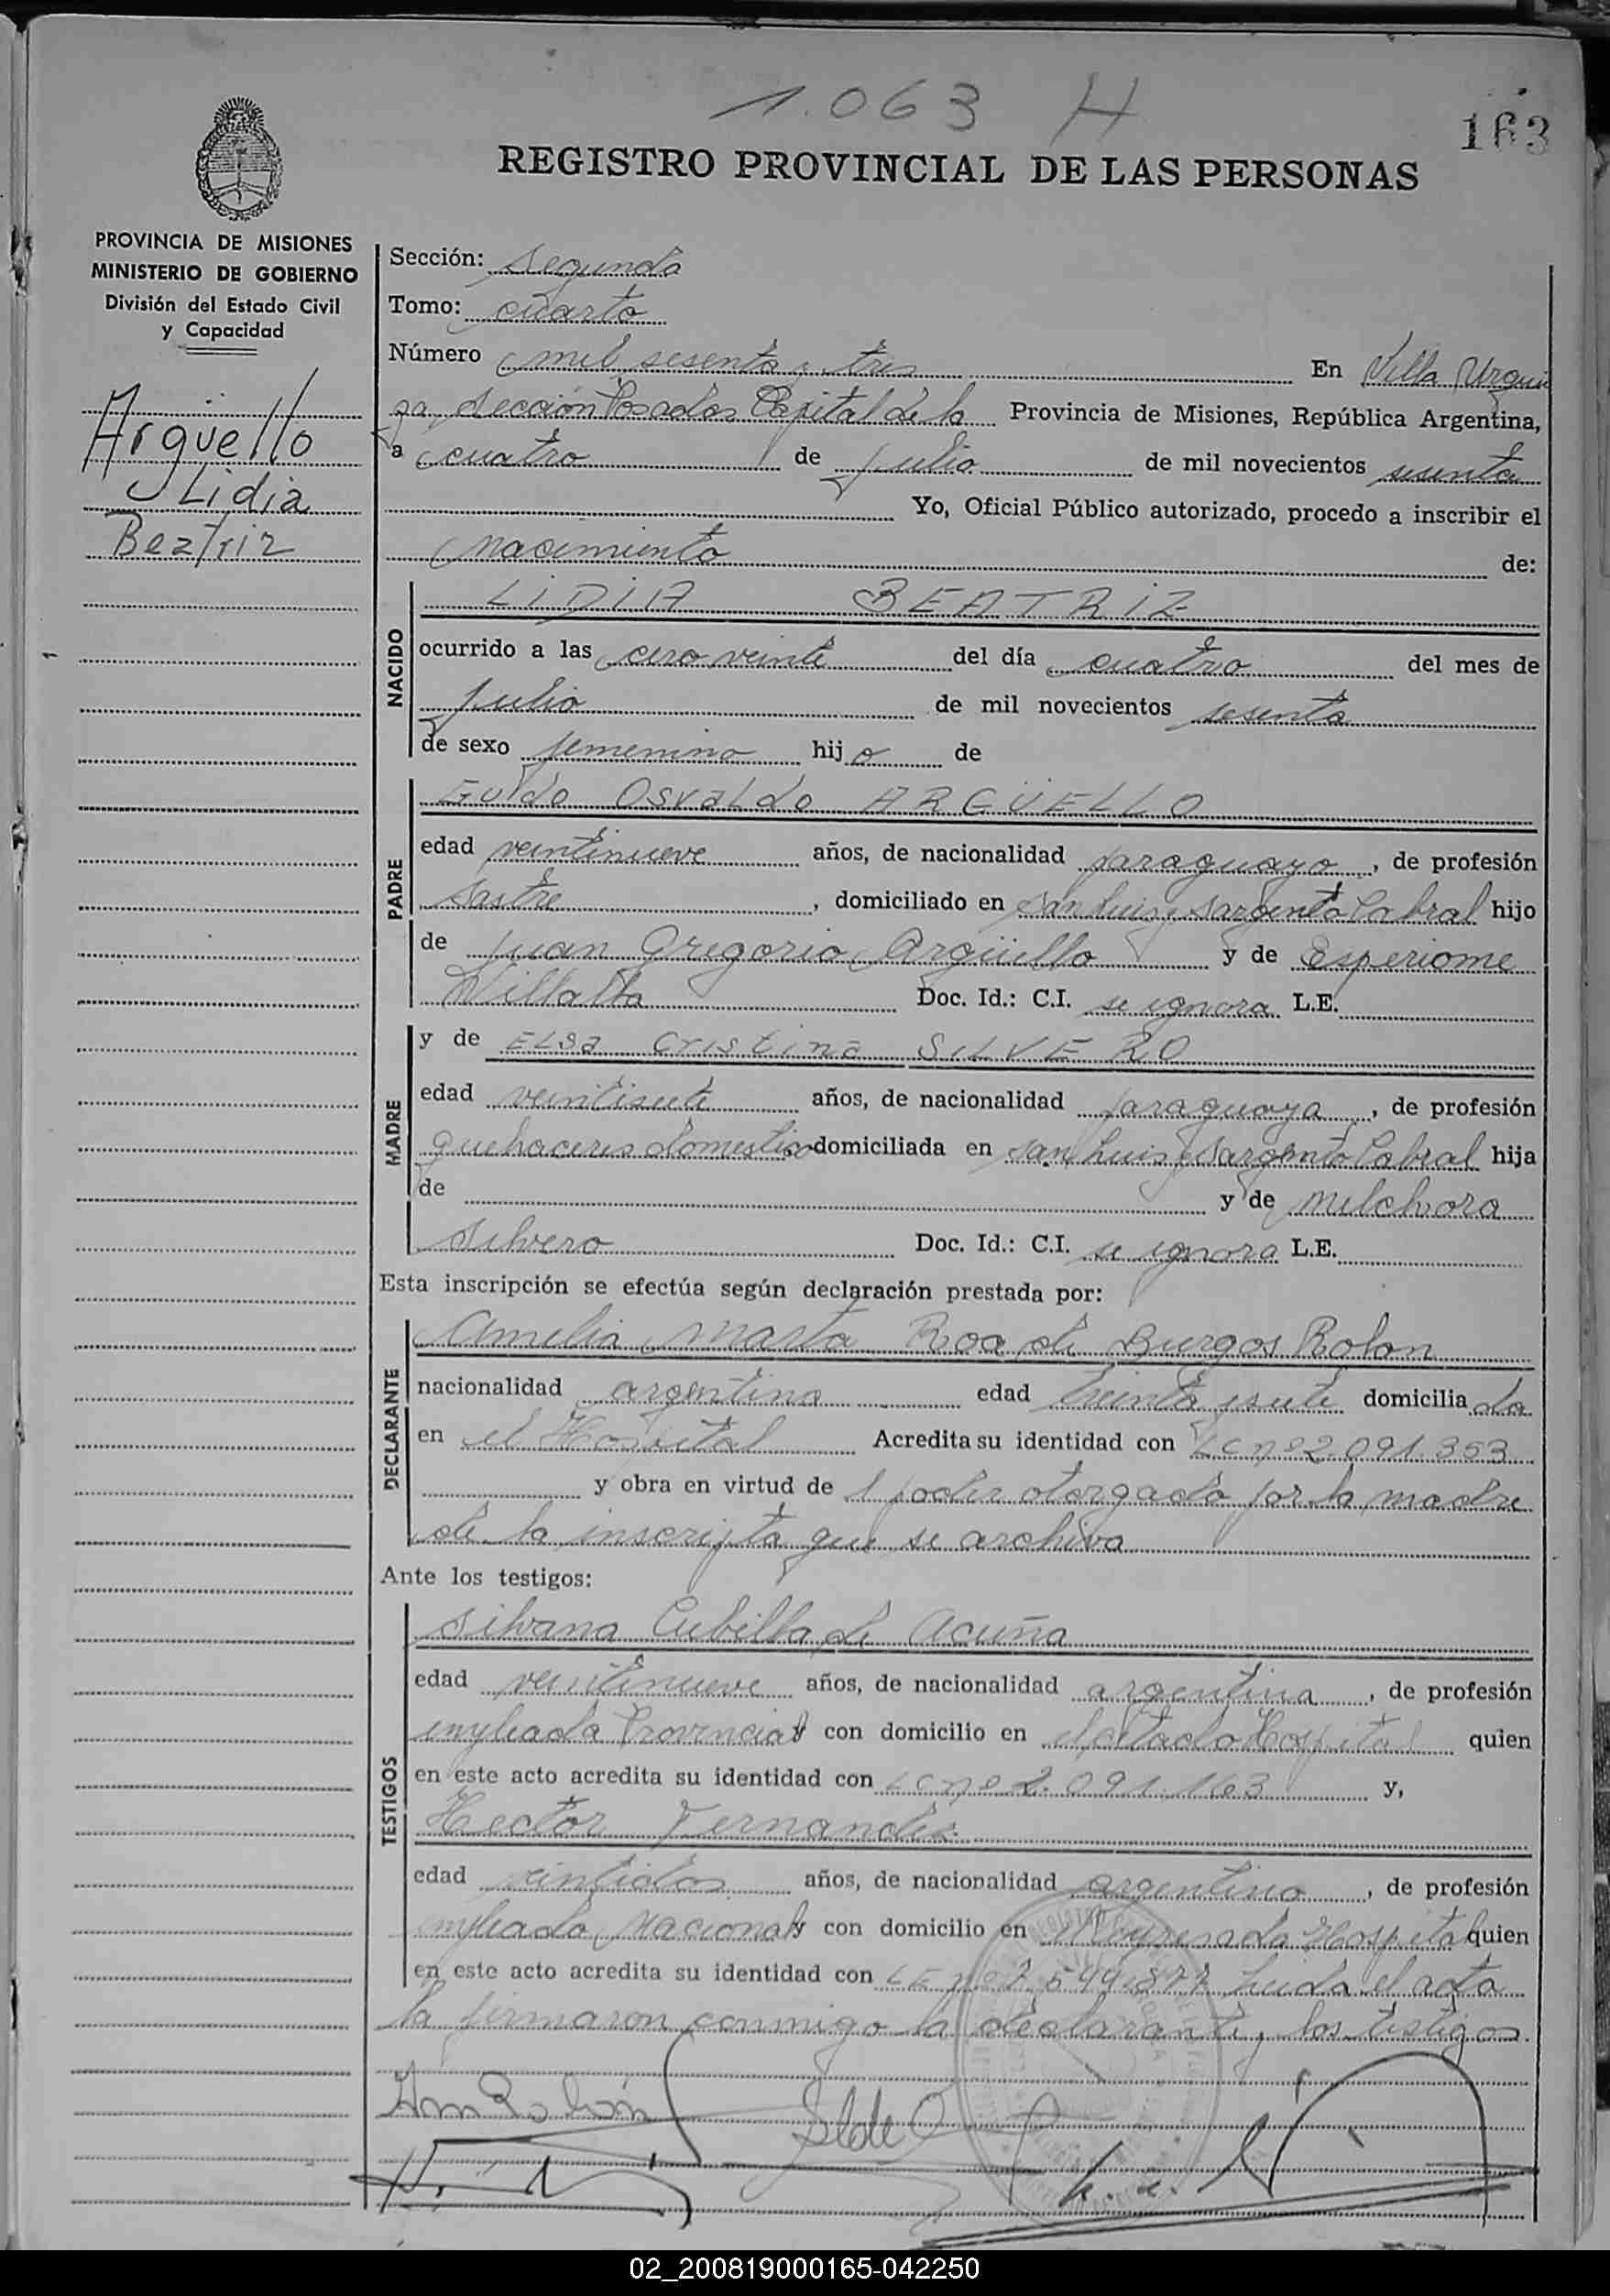 1.063 H
163
REGISTRO PROVINCIAL DE LAS PERSONAS
PROVINCIA DE MISIONES
MINISTERIO DE GOBIERNO
División del Estado Civil
y Capacidad
Argüello
Lidia
Beatriz
Sección: segunda
Tomo: cuarto
Número mil sesenta y tres En Villa Urqui
za, sección Posadas Capital de la Provincia de Misiones, República Argentina,
a cuatro de julio de mil novecientos sesenta
Yo, Oficial Público autorizado, procedo a inscribir el
nacimiento de:
NACIDO
LIDIA BEATRIZ
ocurrido a las cero veinte del día cuatro del mes de
julio de mil novecientos sesenta
de sexo femenino hijo de
PADRE
Guido Osvaldo ARGÜELLO
edad veintinueve años, de nacionalidad paraguayo, de profesión
sastre, domiciliado en San Luis y Sargento Cabral hijo
de Juan Gregorio Argüello y de Esperiome
Villalta Doc. Id.: C.I. se ignora L.E.
MADRE
y de ELsa Cristina SILVERO
edad veintisiete años, de nacionalidad paraguaya, de profesión
quehaceres domestico domiciliada en San Luis y Sargento Cabral hija
de y de Melchora
Silvero Doc. Id.: C.I. se ignora L.E.
Esta inscripción se efectúa según declaración prestada por:
DECLARANTE
Amelia Marta Roa de Burgos Rolon
nacionalidad argentina edad treinta y siete domiciliada
en el Hospital Acredita su identidad con LC nº 2.091.353
y obra en virtud de 1 poder otorgado por la madre
de la inscripta que se archiva
Ante los testigos:
TESTIGOS
Silvana Cubilla de Acuña
edad veintinueve años, de nacionalidad argentina, de profesión
empleada Provincial y con domicilio en el citado Hospital quien
en este acto acredita su identidad con LC nº 2.091.163 y,
Hector Fernandes
edad veintidos años, de nacionalidad argentino, de profesión
empleado Nacional y con domicilio en Hospital quien
en este acto acredita su identidad con LE nº 7.544.877 Leida el acta
la firmaron conmigo la declarante y los testigos.
02_200819000165-042250